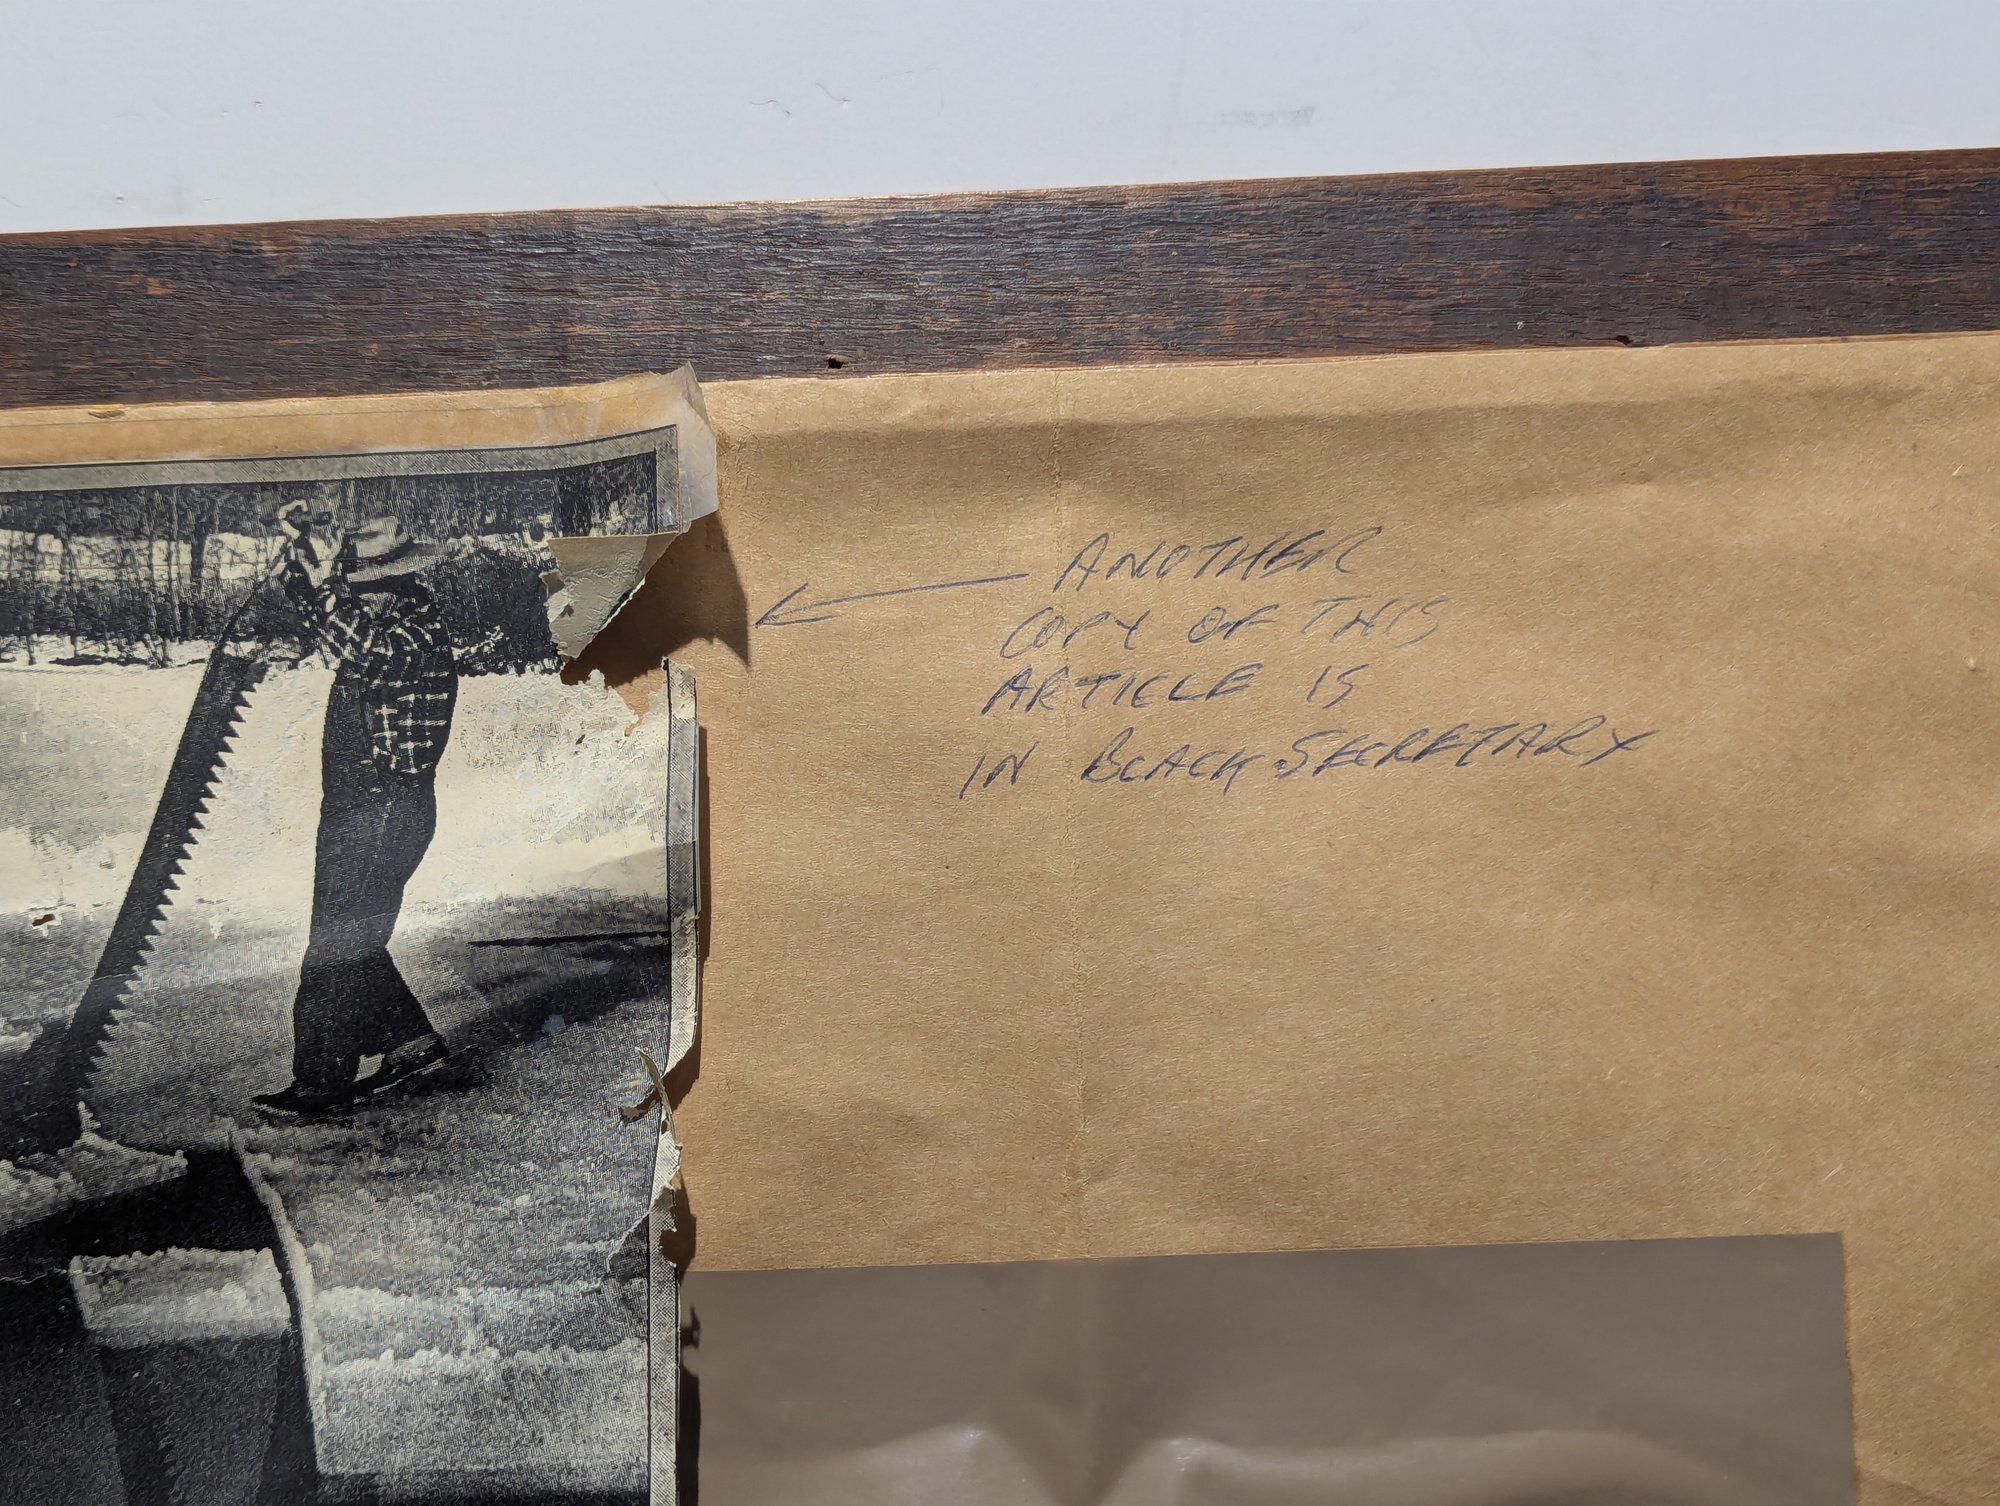 ANOTHER
COPY OF THIS
ARTICLE IS
IN BLACK SECRETARY